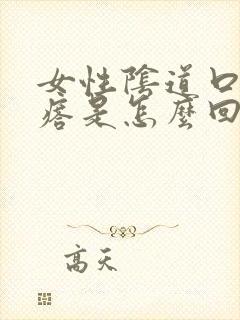 女性陰道口
痞是怎麼回
高天